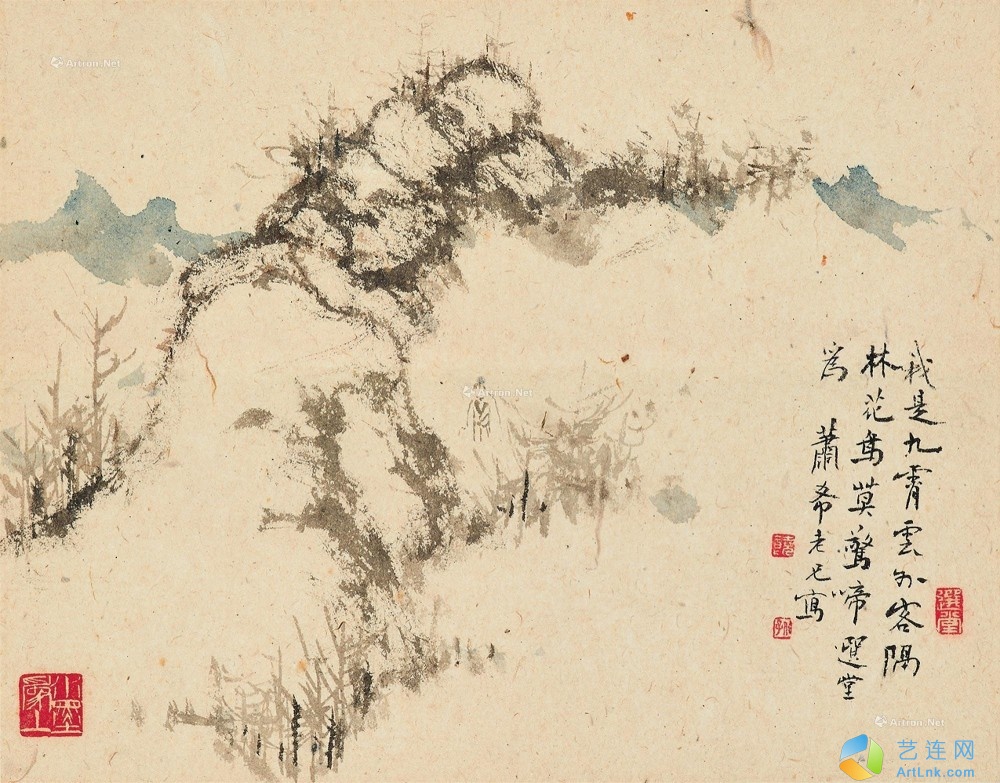 Artron.Net
Artron.Net
我是九霄雲外客隔
林花鳥莫驚啼選堂
為蕭希老兄寫
選堂
Artron.Net
艺连网
ArtLnk.com